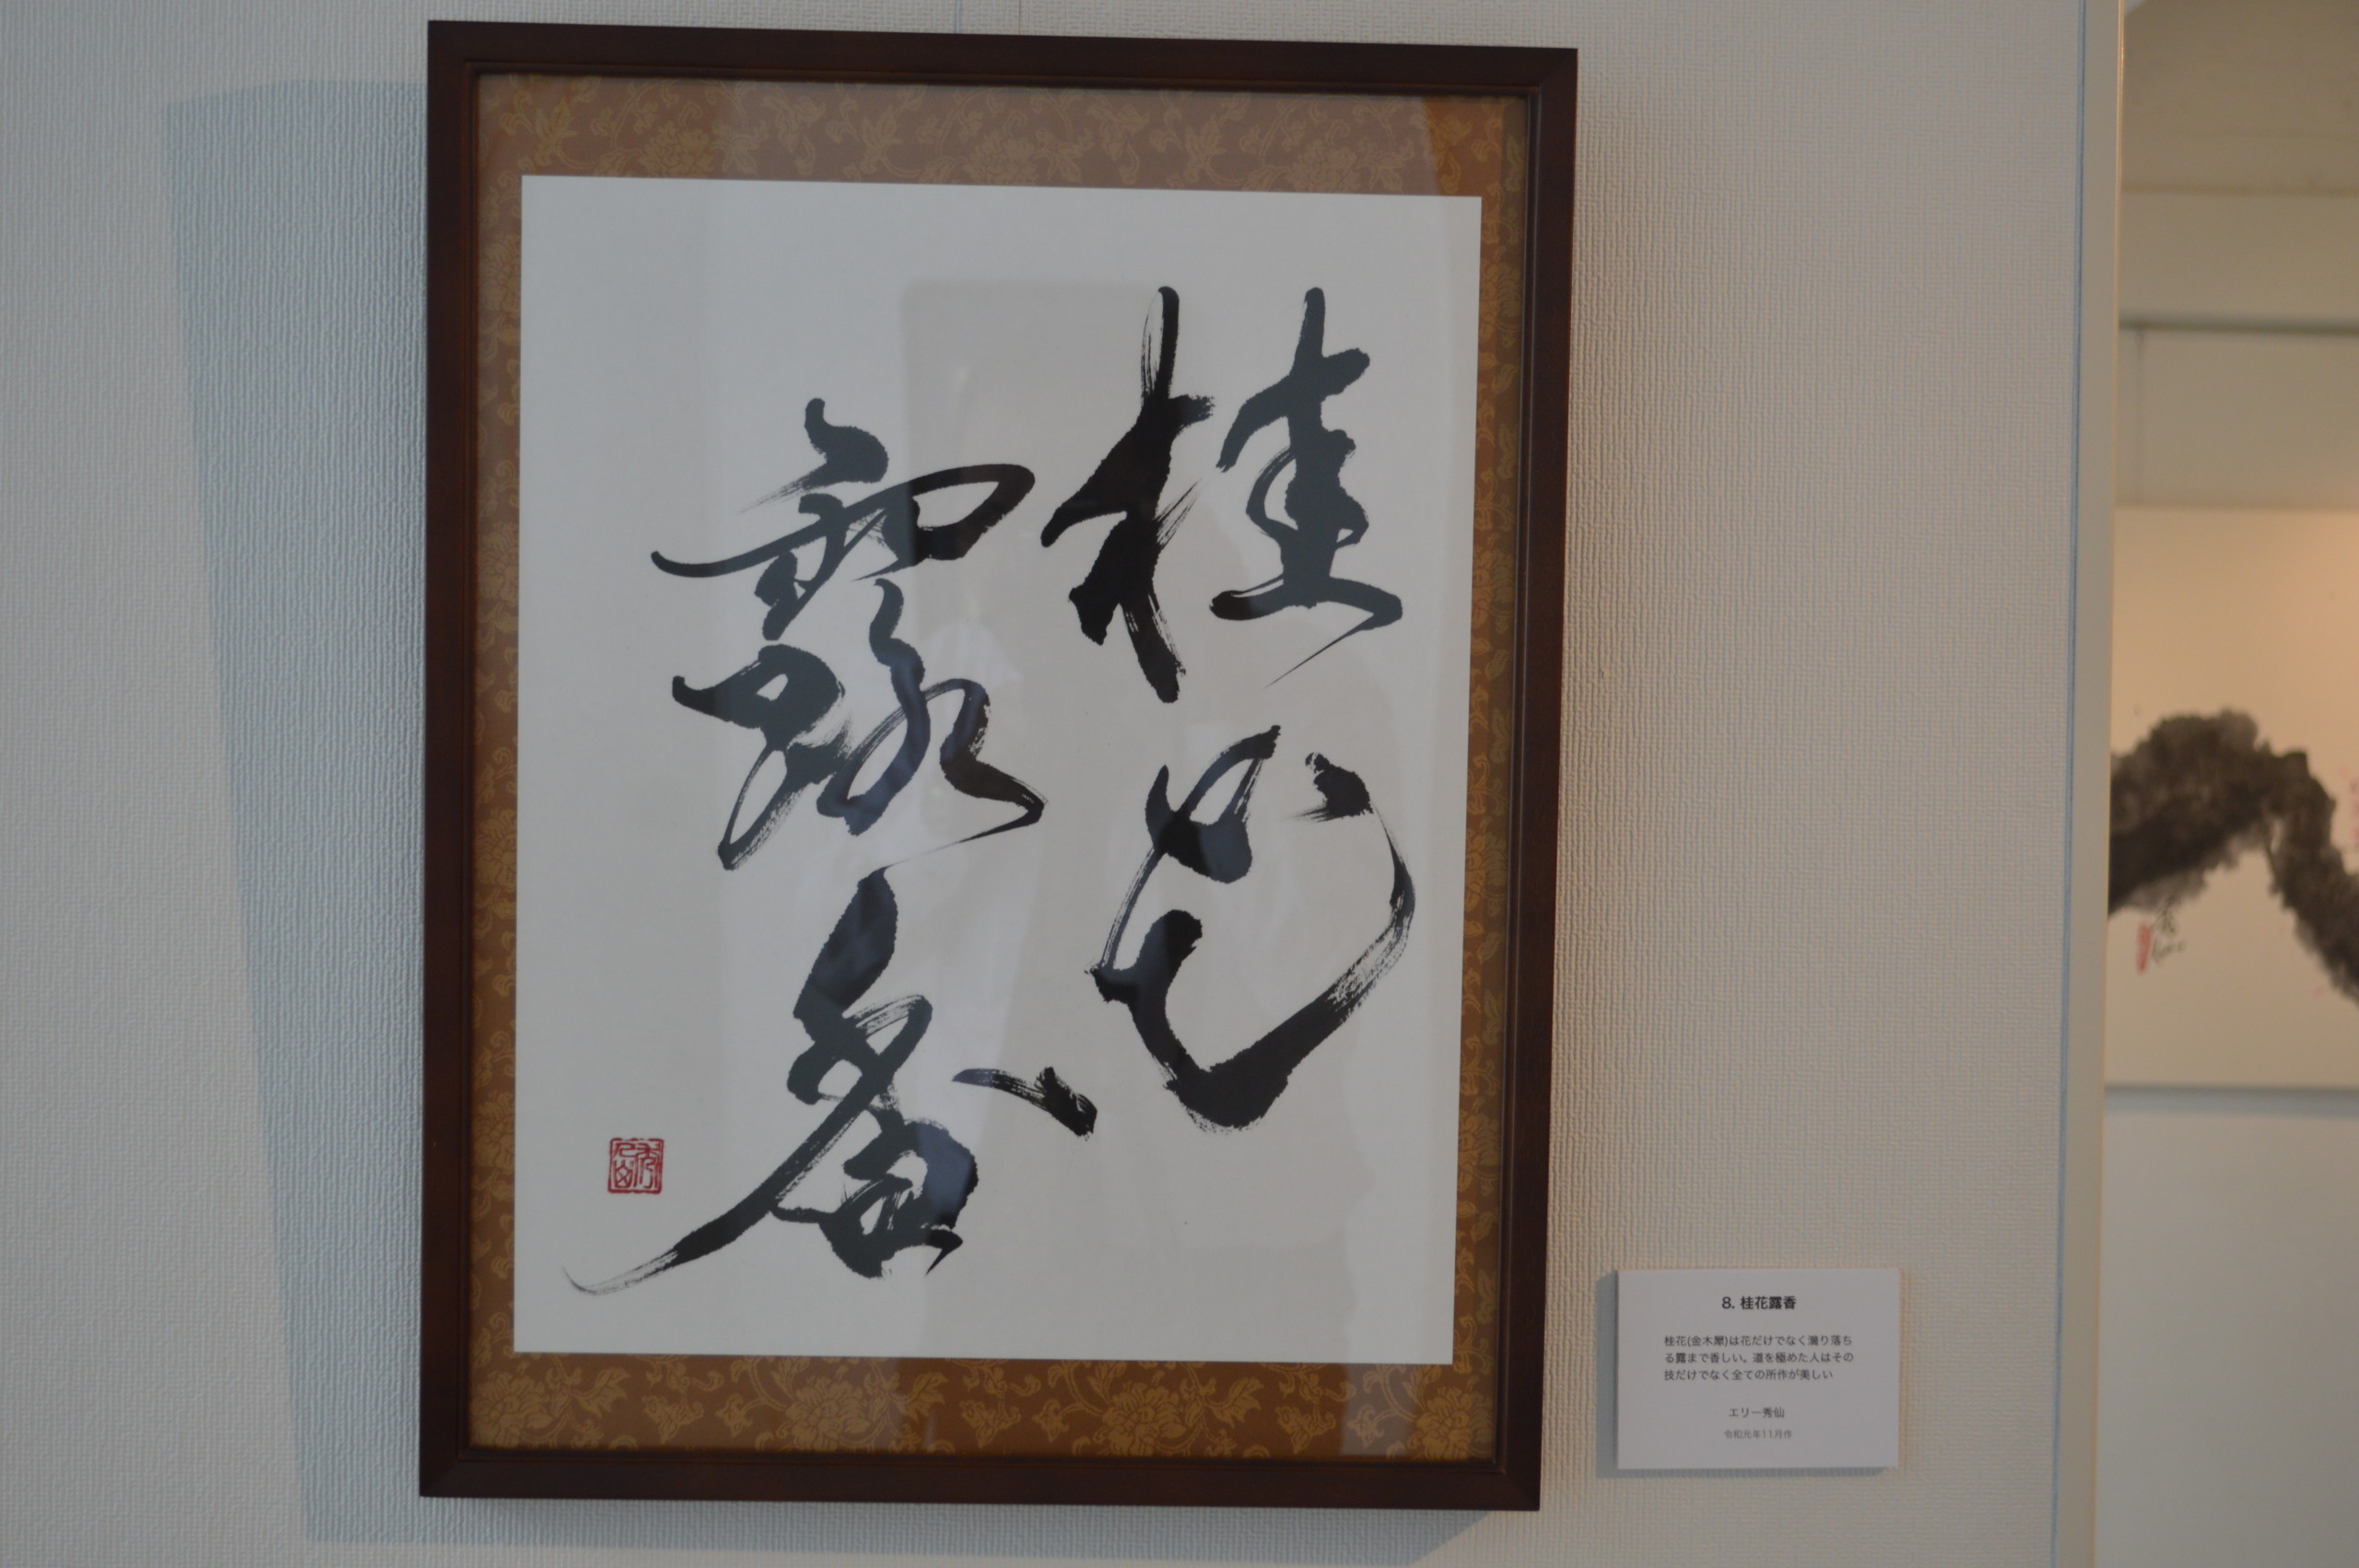 桂花
露香
8. 桂花露香
桂花(金木犀)は花だけでなく滴り落ち
る露まで香しい。道を極めた人はその
技だけでなく全ての所作が美しい
エリー秀仙
令和元年11月作